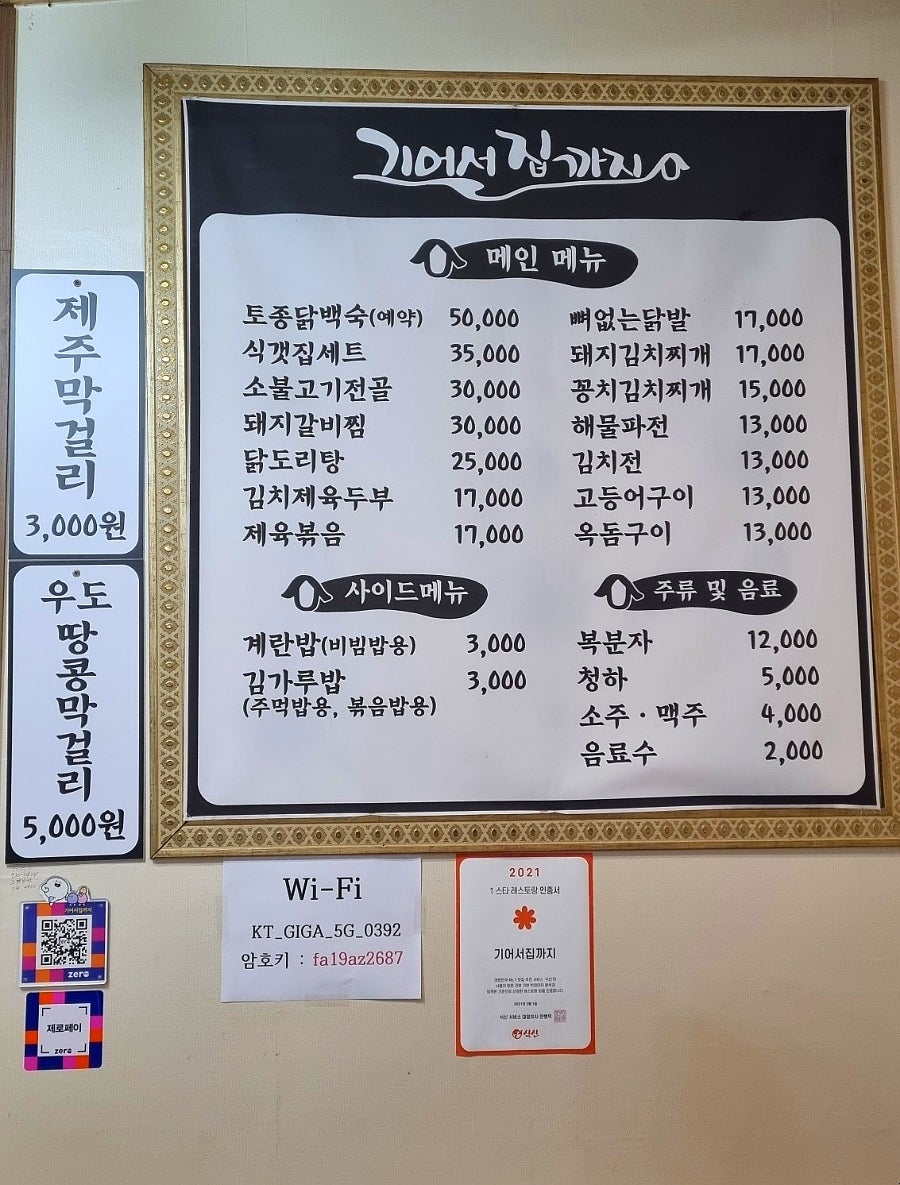 기어서집까지
메인 메뉴
토종닭백숙(예약) 50,000
식갯집세트 35,000
소불고기전골 30,000
돼지갈비찜 30,000
닭도리탕 25,000
김치제육두부 17,000
제육볶음 17,000
뼈없는닭발 17,000
돼지김치찌개 17,000
꽁치김치찌개 15,000
해물파전 13,000
김치전 13,000
고등어구이 13,000
옥돔구이 13,000
사이드메뉴
계란밥(비빔밥용) 3,000
김가루밥 3,000
(주먹밥용, 볶음밥용)
주류 및 음료
복분자 12,000
청하 5,000
소주·맥주 4,000
음료수 2,000
제주막걸리
3,000원
우도
땅콩막걸리
5,000원
기어서집까지
zero
제로페이
zero
Wi-Fi
KT_GIGA_5G_0392
암호키 : fa19az2687
2021
1 스타 레스토랑 인증서
기어서집까지
식신